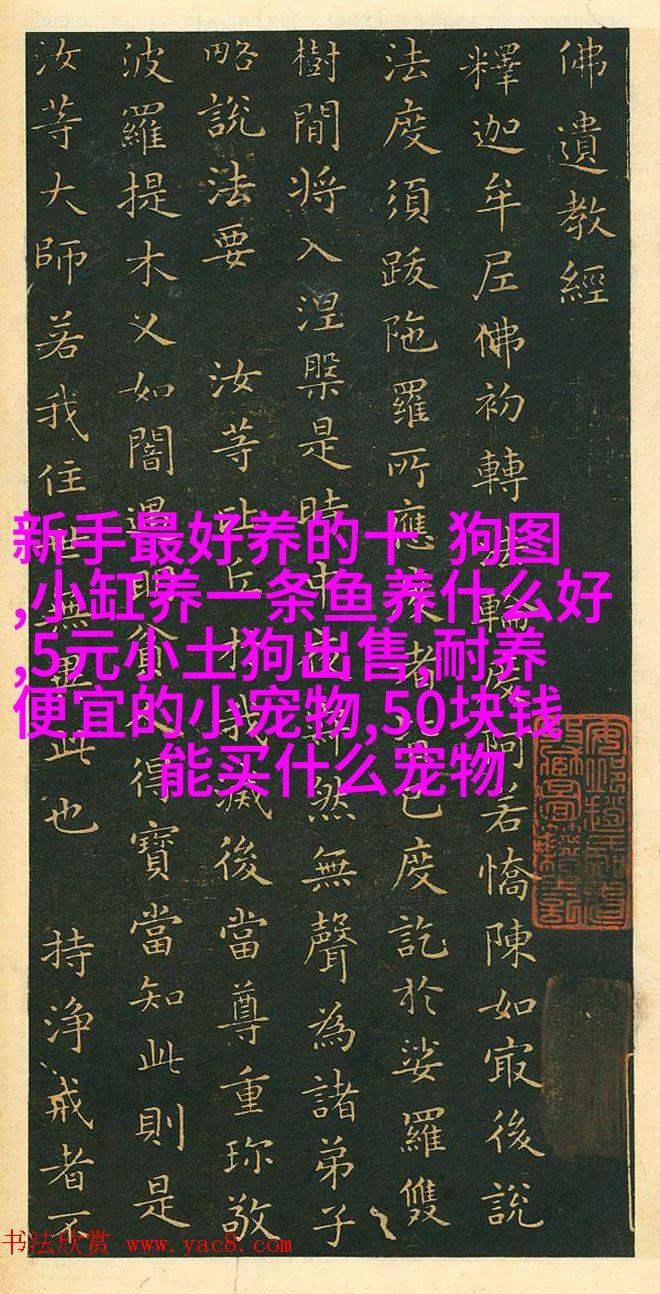 佛遺教經
釋迦牟尼佛初轉法輪度阿若憍陳如冣後說
法度須跋陁羅所應度者皆已度訖於娑羅雙
樹間將入涅槃是時中夜寂然無聲為諸弟子
略說法要 汝等比丘於我滅後當尊重珎敬
波羅提木叉如闇遇明貧人得寶當知此則是
汝等大師若我住世無異此也 持淨戒者不
新手最好养的十 狗图
,小缸养一条鱼养什么好
,5元小土狗出售,耐养
便宜的小宠物,50块钱
能买什么宠物
书法欣赏 www.yac8.com